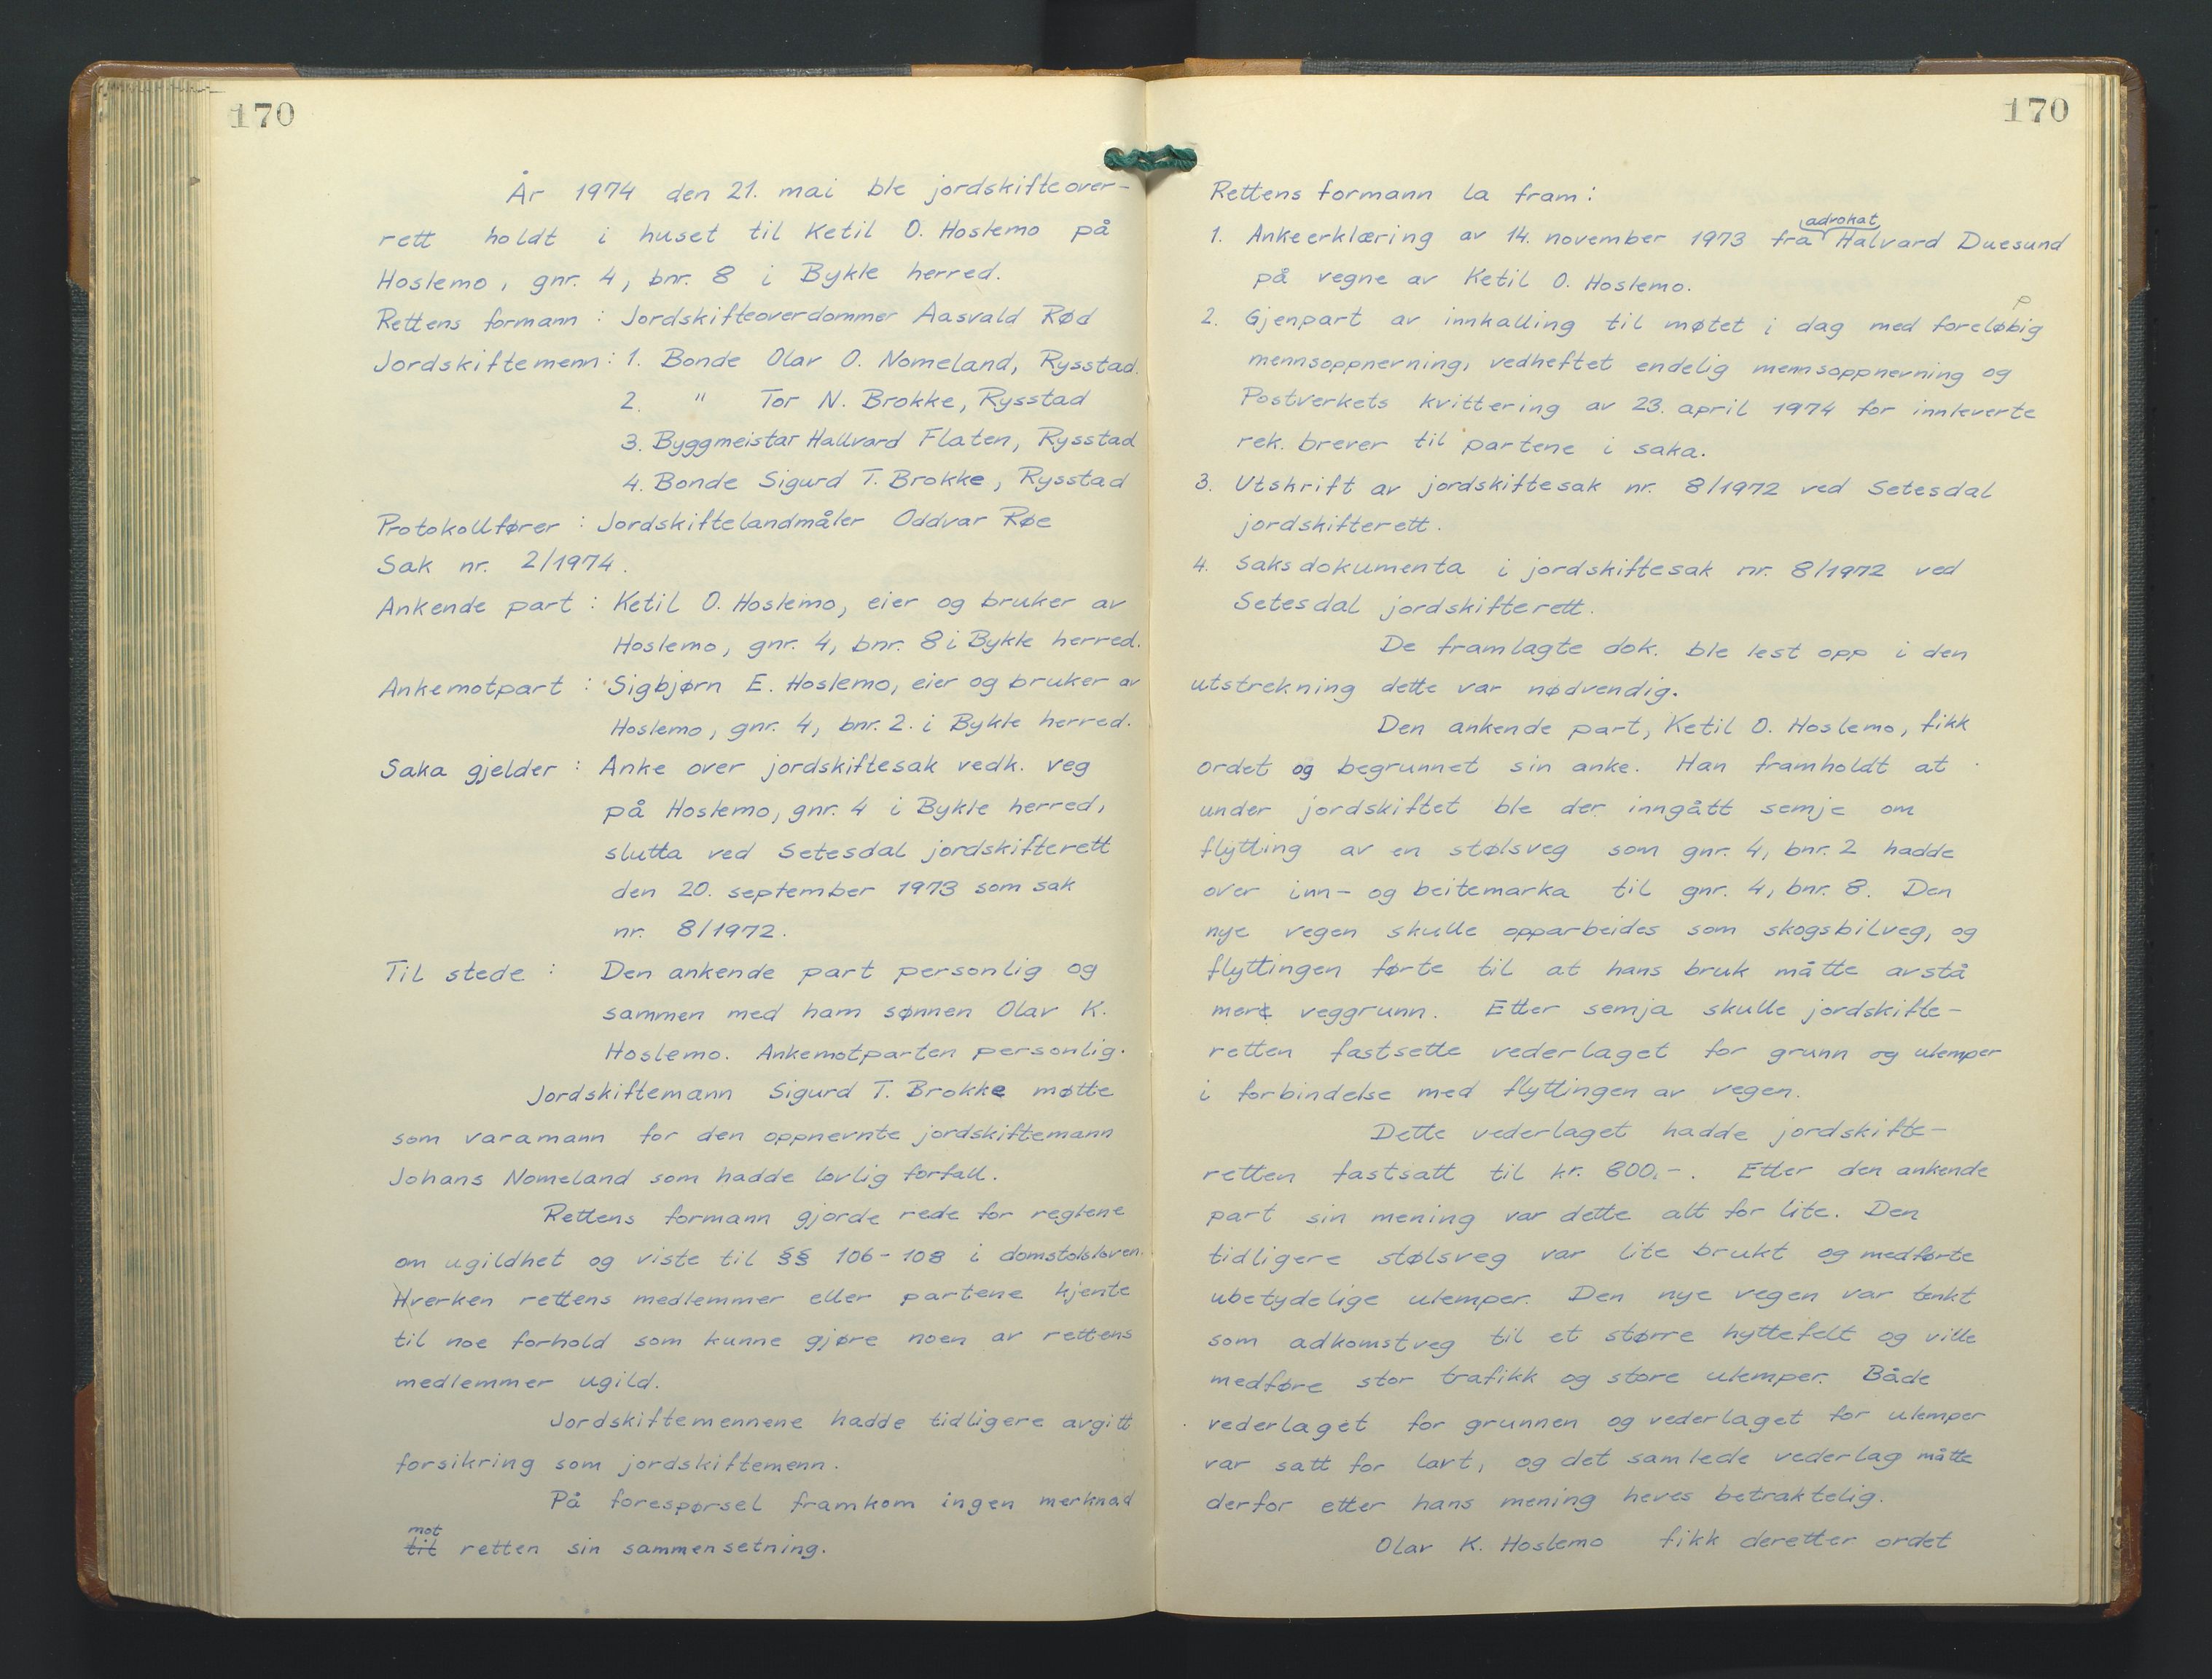 170
År 1974 den 21. mai ble jordskifteover-
rett holdt i huset til Ketil O. Hoslemo på
Hoslemo, gnr. 4, bnr. 8 i Bykle herred.
Rettens formann : Jordskifteoverdommer Aasvald Rød
Jordskiftemenn : 1. Bonde Olav O. Nomeland, Rysstad.
2. " Tor N. Brokke, Rysstad
3. Byggmeistar Hallvard Flaten, Rysstad
4. Bonde Sigurd T. Brokke, Rysstad
Protokollfører : Jordskiftelandmåler Oddvar Røe
Sak nr. 2/1974.
Ankende part : Ketil O. Hoslemo, eier og bruker av
Hoslemo, gnr. 4, bnr. 8 i Bykle herred.
Ankemotpart : Sigbjørn E. Hoslemo, eier og bruker av
Hoslemo, gnr. 4, bnr. 2. i Bykle herred.
Saka gjelder : Anke over jordskiftesak vedk. veg
på Hoslemo, gnr. 4 i Bykle herred,
slutta ved Setesdal jordskifterett
den 20. september 1973 som sak
nr. 8/1972.
Til stede : Den ankende part personlig og
sammen med ham sønnen Olav K.
Hoslemo. Ankemotparten personlig.
Jordskiftemann Sigurd T. Brokke møtte
som varamann for den oppnevnte jordskiftemann
Johans Nomeland som hadde lovlig forfall.
Rettens formann gjorde rede for reglene
om ugildhet og viste til §§ 106-108 i domstolsloven.
Hverken rettens medlemmer eller partene kjente
til noe forhold som kunne gjøre noen av rettens
medlemmer ugild.
Jordskiftemennene hadde tidligere avgitt
forsikring som jordskiftemenn.
På forespørsel framkom ingen merknad
mot
til retten sin sammensetning.
170
Rettens formann la fram:
advokat
1. Ankeerklæring av 14. november 1973 fra Halvard Duesund
på vegne av Ketil O. Hoslemo.
p
2. Gjenpart av innkalling til møtet i dag med foreløbig
mennsoppnevning, vedheftet endelig mennsoppnevning og
Postverkets kvittering av 23. april 1974 for innleverte
rek. brever til partene i saka.
3. Utskrift av jordskiftesak nr. 8/1972 ved Setesdal
jordskifterett.
4. Saksdokumenta i jordskiftesak nr. 8/1972 ved
Setesdal jordskifterett.
De framlagte dok. ble lest opp i den
utstrekning dette var nødvendig.
Den ankende part, Ketil O. Hoslemo, fikk
ordet og begrunnet sin anke. Han framholdt at
under jordskiftet ble der inngått semje om
flytting av en stølsveg som gnr. 4, bnr. 2 hadde
over inn- og beitemarka til gnr. 4, bnr. 8. Den
nye vegen skulle opparbeides som skogsbilveg, og
flyttingen førte til at hans bruk måtte avstå
mer veggrunn. Etter semja skulle jordskifte-
retten fastsette vederlaget for grunn og ulemper
i forbindelse med flyttingen av vegen.
Dette vederlaget hadde jordskifte-
retten fastsatt til kr. 800,-. Etter den ankende
part sin mening var dette alt for lite. Den
tidligere stølsveg var lite brukt og medførte
ubetydelige ulemper. Den nye vegen var tenkt
som adkomstveg til et større hyttefelt og ville
medføre stor trafikk og store ulemper. Både
vederlaget for grunnen og vederlaget for ulemper
var satt for lavt, og det samlede vederlag måtte
derfor etter hans mening heves betraktelig.
Olav K. Hoslemo fikk deretter ordet